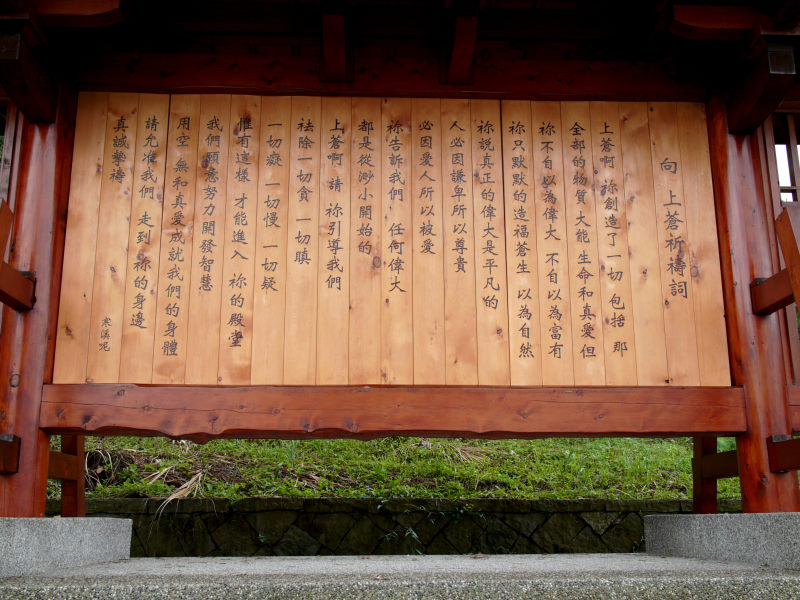 向 上蒼祈禱詞
上蒼啊 祢創造了一切 包括 那
全部的物質 大能 生命和真愛 但
祢不自以為偉大 不自以為富有
祢只默默的造福蒼生 以為自然
祢說真正的偉大是平凡的
人必因謙卑所以尊貴
必因愛人所以被愛
祢告訴我們 任何偉大
都是從渺小開始的
上蒼啊 請 祢引導我們
祛除一切貪 一切嗔
一切癡 一切慢 一切疑
惟有這樣 才能進入 祢的殿堂
我們願意努力開發智慧
用空 無和真愛成就我們的身體
請允准我們 走到 祢的身邊
真誠摯禱
寒溪呢